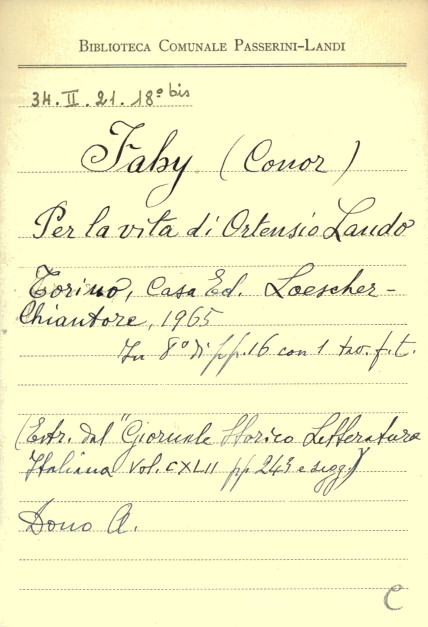 BIBLIOTECA COMUNALE PASSERINI-LANDI
34. II. 21. 18º bis
Fahy (Conor)
Per la vita di Ortensio Lando
Torino, Casa Ed. Loescher-
Chiantore, 1965
In 8º di pp. 16 con 1 tav. f. t.
(Estr. dal "Giornale Storico Letteratura
Italiana Vol. CXLII pp 243 e segg.)
Dono A.
C